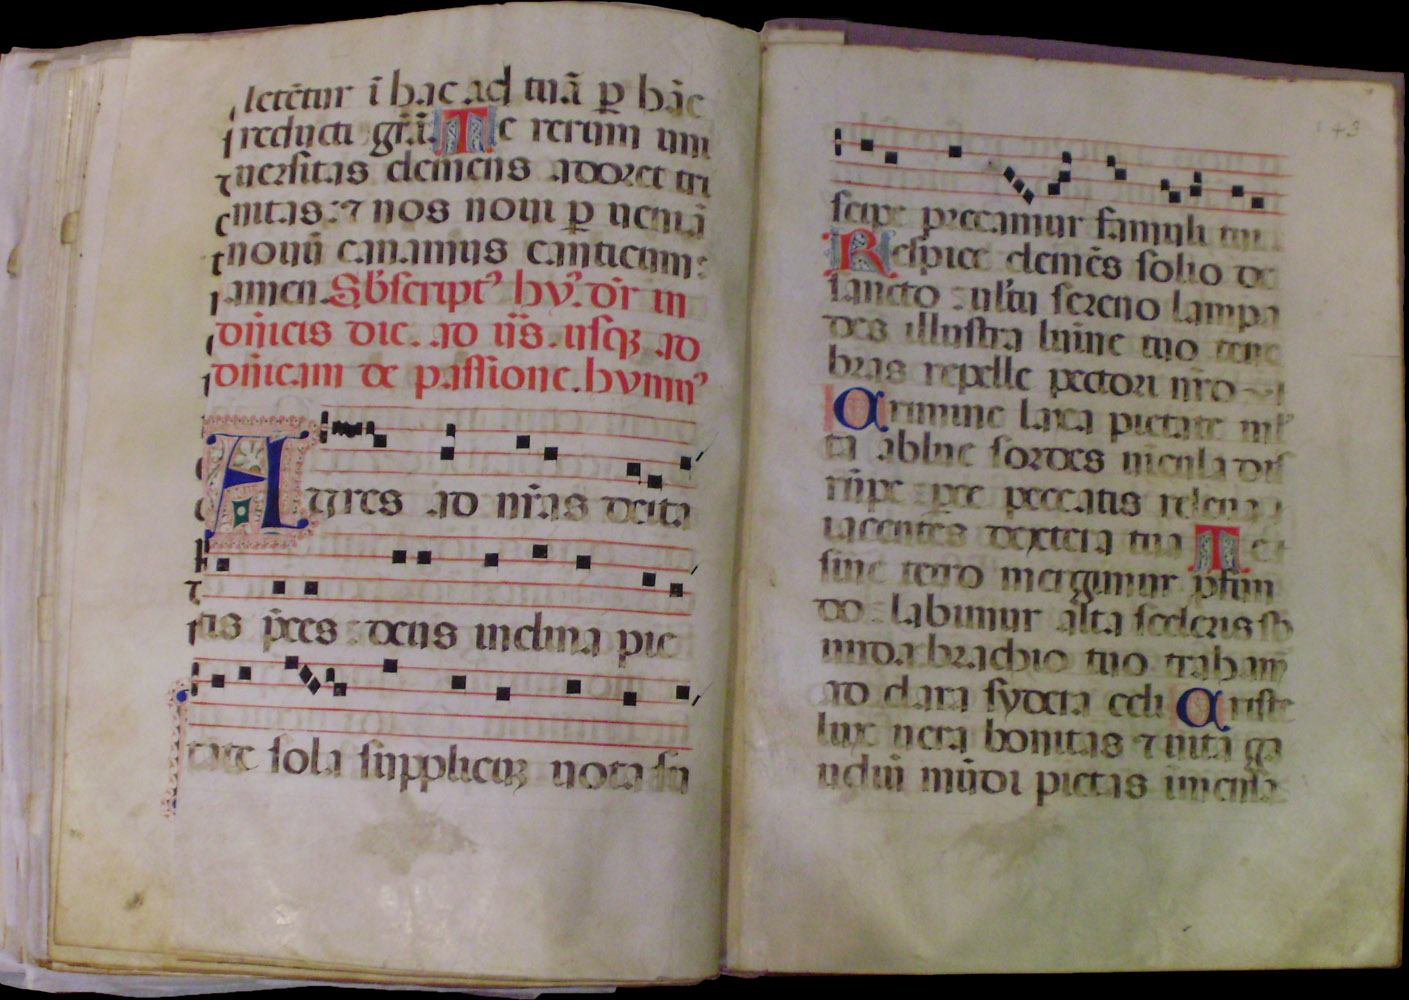 letēt̄ur ī hac ad tuā p hāc
reducti gr̄āꝫ Te rerum uni
uersitas clemens adoret tri
nitas: ⁊ nos noui p ueniā
nouū canamus canticum:
amen. Sb̄script᾿ hy᾿. dr̄ in
dn̄icis die. ad iīs. usqꝫ ad
dn̄icam de passione. hymn᾿
Ayres ad nr̄as deita
tis p̄ces: deus inclina pie
tate sola supplicuꝫ uota su
143
scipe precamur famuli tui
Respice clemēs solio de
sancto: uultu sereno lampa
des illustra lumine tuo tene
bras repelle pectori nr̄o
Carmine laxa pietate mul
ta ablue sordes uincula dis
rūpe: pce peccatis releua
iacentes dextera tua Te
sine tetro mergimur pfun
do: labimur alta sceleris sb
unda brachio tuo trahamr̄
ad clara sydera celi Criste
lux uera bonitas ⁊ uita ga
udiū mūdi pietas imēnsa